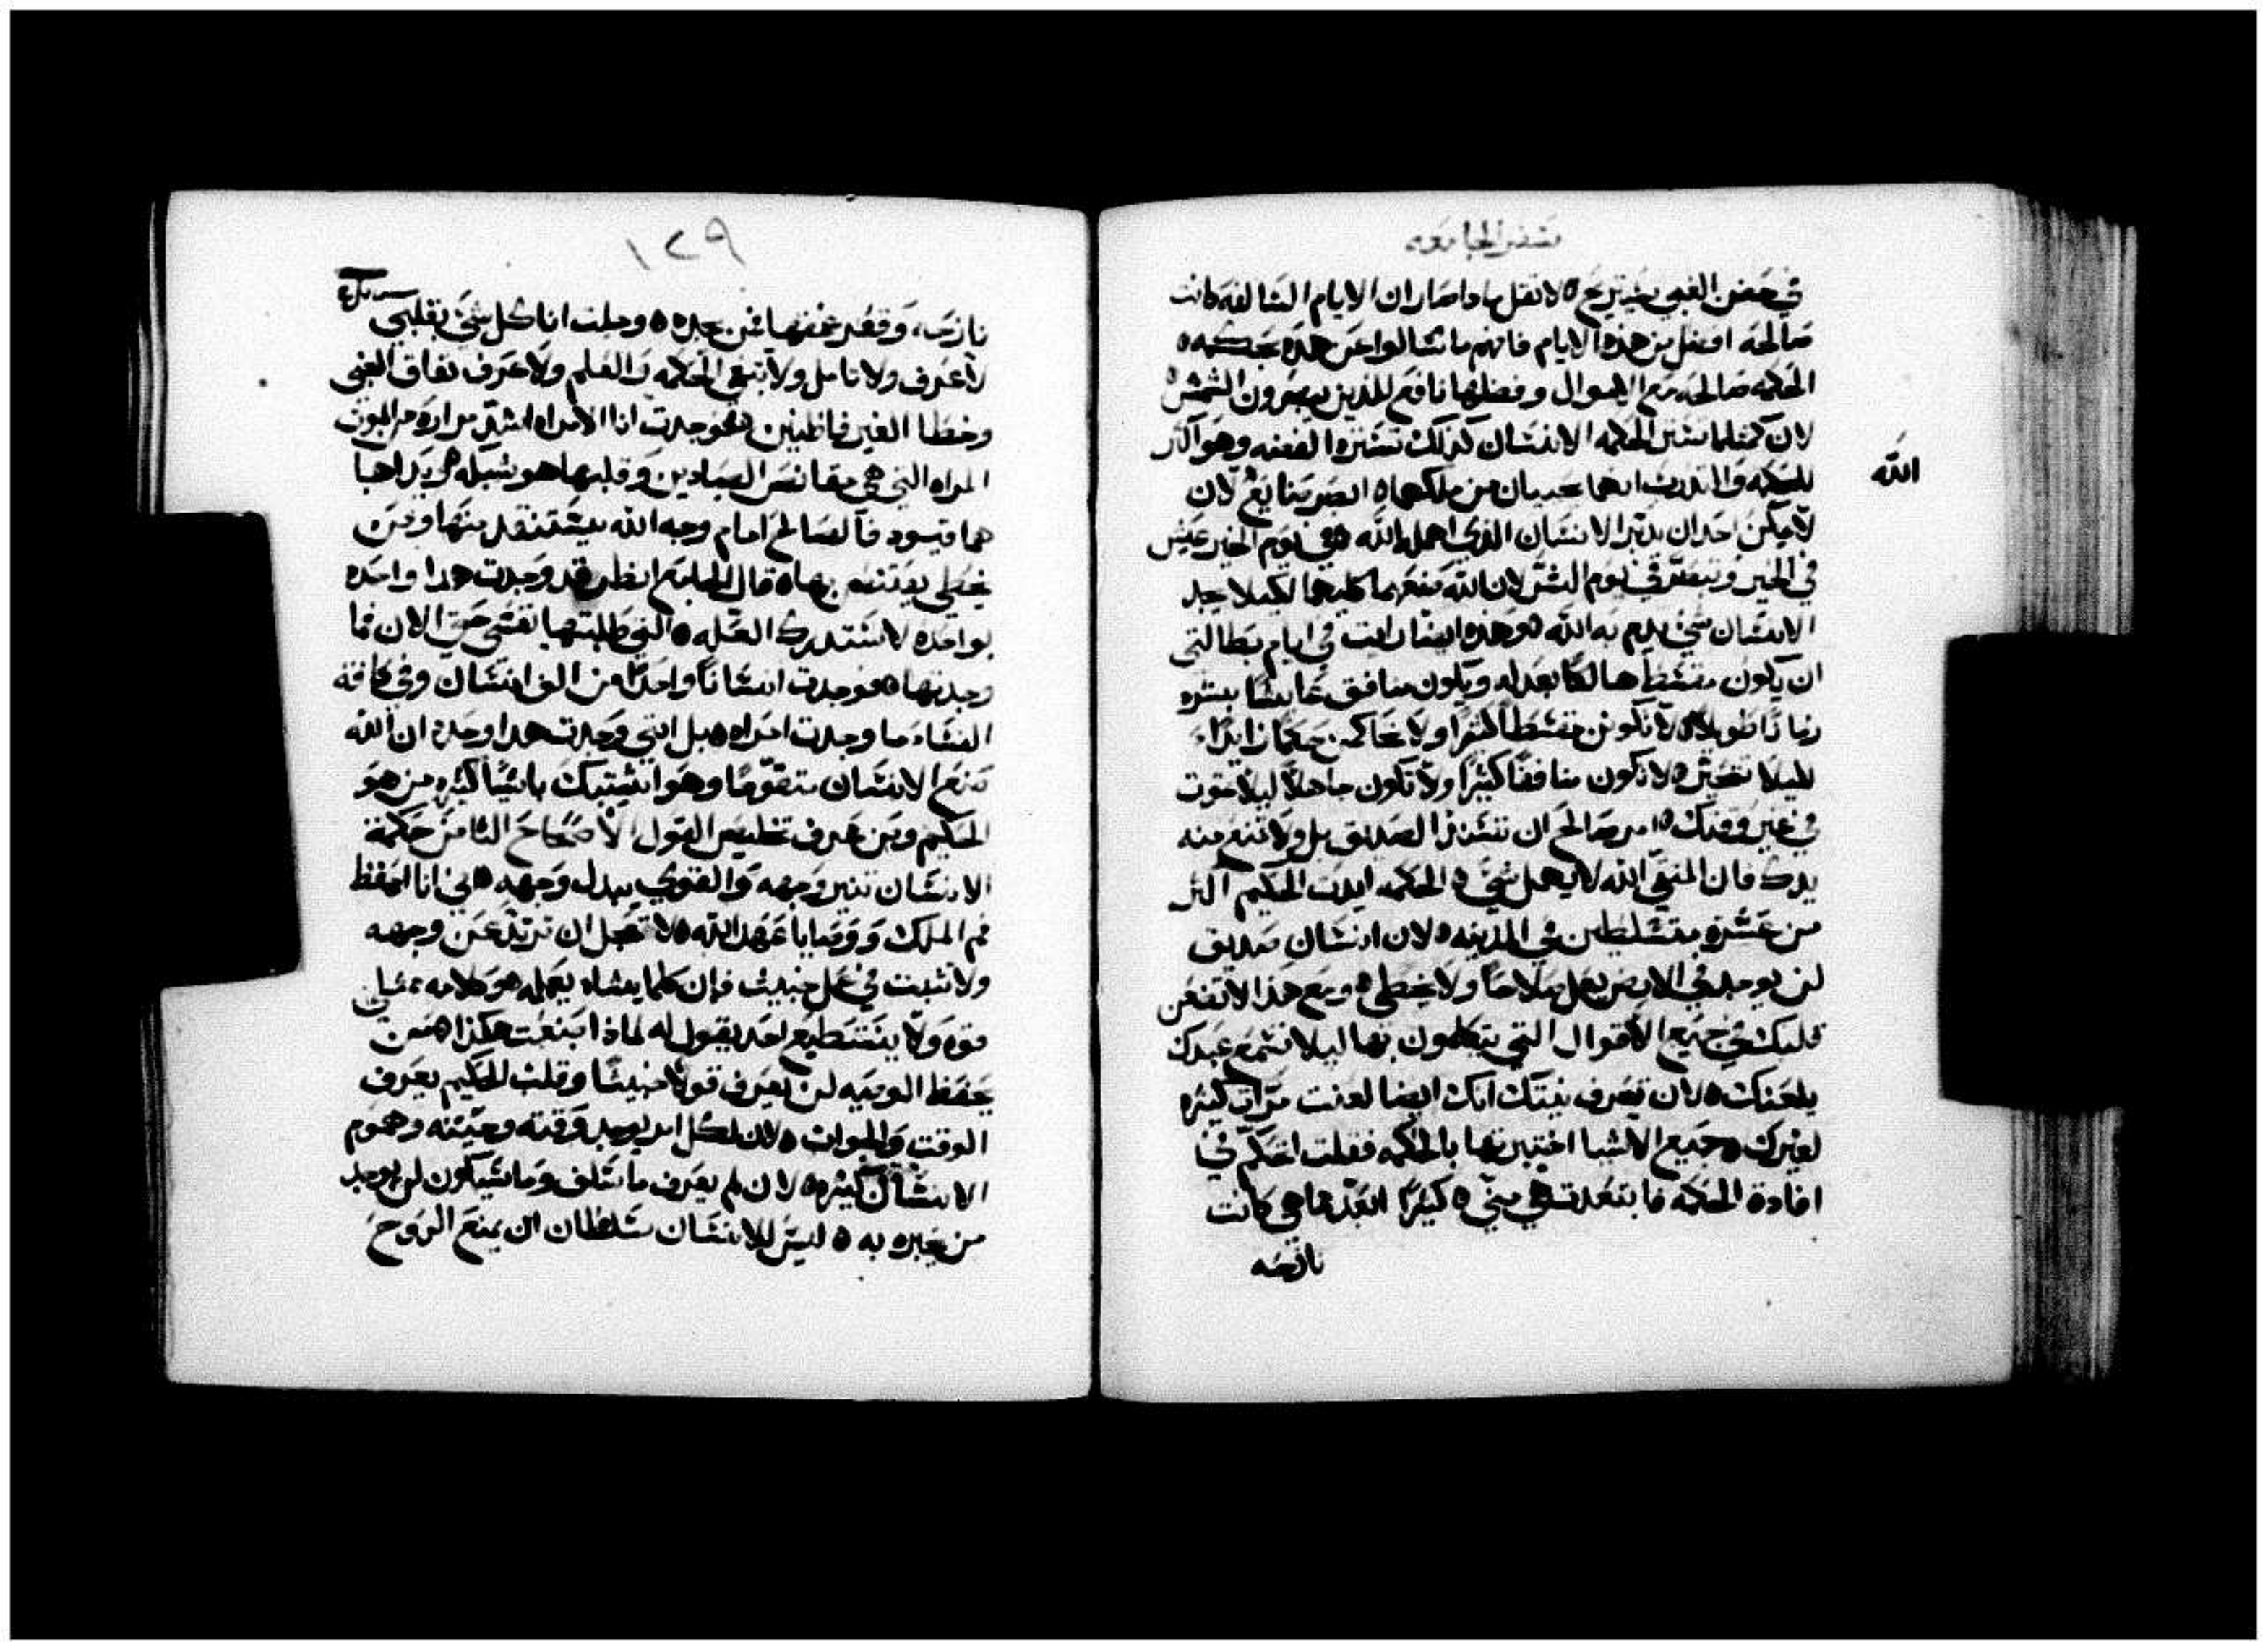 سفر الجامعه
في حضن الغبي يستريح ه لا تقل ماذا صار ان الايام السالفه كانت
صالحه افضل من هذه الايام فانهم ما سالوا عن هذه بحكمه ه
الحكمه صالحه مع الاموال وفضلها نافع للذين يبصرون الشمس ه
لان كمثلما تستر الحكمه الانسان كذلك تستره الفضه وهو اكثر
للحكمه والتدريب انهما يحييان من ملكهما ه انصر صنايع لان
الله
لا يمكن احد ان يدبر الانسان الذي اهمله الله ه في يوم الخير عيش
في الخير وتبصر في يوم الشر لان الله صنعهما كليهما لكيلا يجد
الانسان شي يلم به الله ه وهذه ايضا رايت في ايام بطالتي
ان يكون مقسط هالكا بعدله ويكون منافق عايشا بشره
زمانا طويلا ه لا تكونن مقسطا كثيرا ولا تحاكمن حكما زايدا
ليلا تتحير ه لا تكون منافقا كثيرا ولا تكون جاهلا ليلا تموت
في غير وقتك ه امر صالح ان تسند الصديق بل ولا تمنع منه
يدك فان المتقي الله لا يهمل شي ه الحكمه ايدت الحكيم اكثر
من عشره متسلطين في المدينه ه لان انسان صديق
لن يوجد في الارض يعمل صلاحا ولا يخطي ه ومع هذا لا تضعن
قلبك في جميع الاقوال التي يتكلمون بها ليلا تسمع عبدك
يلعنك ه لان تعرف نيتك انك ايضا لعنت مرات كثيره
لغيرك ه جميع الاشيا اختبرتها بالحكمه فقلت احكم في
افادة الحكمه فابتعدت هي مني ه كثيرا ابعد مما هي كانت
نازحه
١٢٩
نازحه، وقعر عمقها فمن يجده ه وجلت انا كل شي بقلبي
لاعرف ولاتامل ولابتغي الحكمه والعلم ولاعرف نفاق الغبي
وخطا الغير فاطنين ه فوجدت انا الامراه اشد مراره من الموت
المراه التي هي مقانص الصيادين وقلبها هو شبكه ه يداها
هما قيود فالصالح امام وجه الله يستنقد منها ومن
يخطي يقتنص بها ه قال الجامع انظر قد وجدت هذا واحده
بواحده لاستدرك العله ه التي طلبتها نفسي حتى الان فما
وجدتها ه فوجدت انسانا واحدا من الف انسان وفي كافة
النساء ما وجدت امراه ه بل انني وجدت هذا وحده ان الله
صنع الانسان متقوما وهو اشتبك باشيا كثيره من هو
الحكيم ومن عرف تخليص القول الاصحاح الثامن حكمة
الانسان تنير وجهه والقوي يبدل وجهه ه اني انا احفظ
فم الملك ووصايا عهد الله ه لا تعجل ان ترتد عن وجهه
ولا تثبت في عمل خبيث فان كلما يشاء يعمله هو كلامه ممتلي
قوه ولا يستطيع احد يقول له لماذا صنعت هكذا ه من
يحفظ الوصيه لن يعرف قولا خبيثا وقلب الحكيم يعرف
الوقت والجواب ه لان لكل امر يوجد وقته وحينه وهموم
الانسان كثيره ه لان لم يعرف ما سلف وما سيكون لن يوجد
من يخبره به ه ليس للانسان سلطان ان يمنع الروح